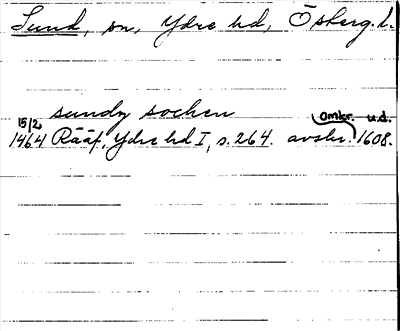 Sund, sn, Ydre hd, Österg. l.
sundz sochen omkr. u.d.
15/2 1464 Rääf, Ydre hd I, s. 264. avskr. 1608.